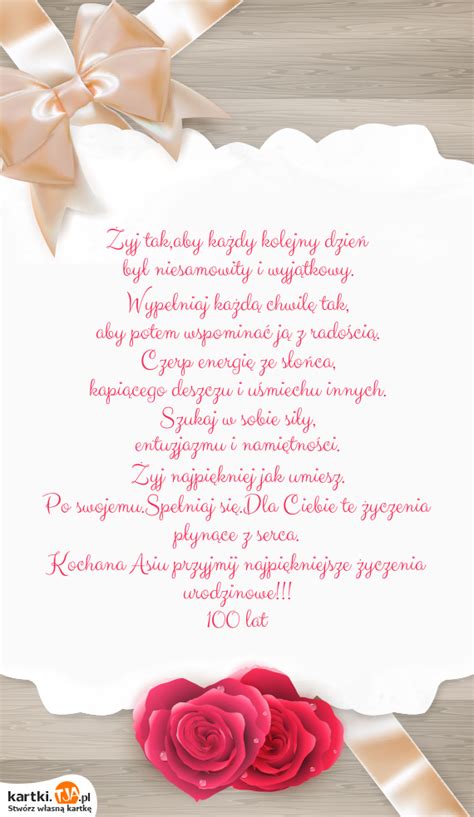 Żyj tak,aby każdy kolejny dzień
był niesamowity i wyjątkowy.
Wypełniaj każdą chwilę tak,
aby potem wspominać ją z radością.
Czerp energię ze słońca,
kapiącego deszczu i uśmiechu innych.
Szukaj w sobie siły,
entuzjazmu i namiętności.
Żyj najpiękniej jak umiesz.
Po swojemu.Spełniaj się..Dla Ciebie te życzenia
płynące z serca.
Kochana Asiu przyjmij najpiękniejsze życzenia
urodzinowe!!!
100 lat
kartki.TJA.pl
Stwórz własną kartkę